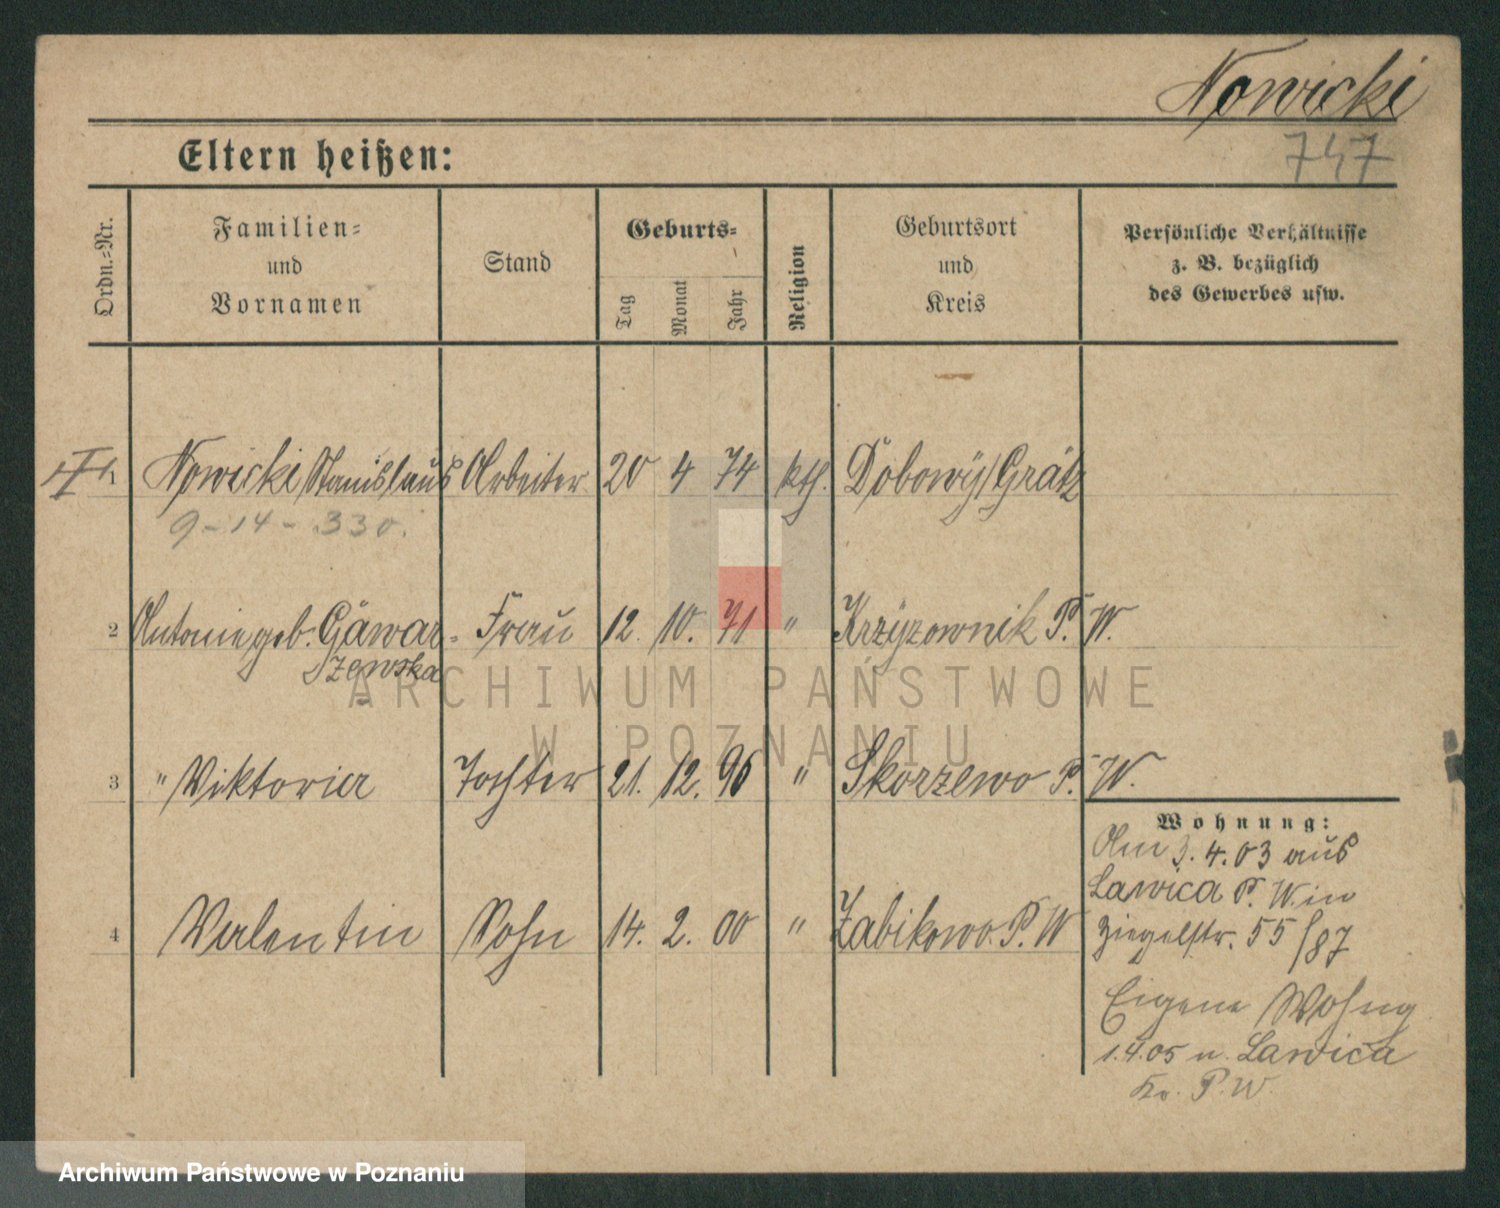 Nowicki
747
Eltern heißen:
Ordn.=Nr.
Familien=
und
Vornamen
Stand
Geburts=
Tag
Monat
Jahr
Religion
Geburtsort
und
Kreis
Persönliche Verhältnisse
z. B. bezüglich
des Gewerbes usw.
1 Nowicki Stanislaus Arbeiter 20 4 74 kth. Dobowy/Grätz
9-14-330.
2 Antonie geb. Gawar- Frau 12. 10. 71 " Krzyzownik P. W.
szewska
3 " Viktoria Tochter 21. 12. 96 " Skorzewo P. W.
4 Valentin Sohn 14. 2. 00 " Zabikowo P. W
Wohnung:
Am 3.4.03 aus
Lawica P. W. in
Ziegelstr. 55/87
Eigene Wohng
1.4.05 n. Lawica
Kr. P. W.
ARCHIWUM PAŃSTWOWE
W POZNANIU
Archiwum Państwowe w Poznaniu